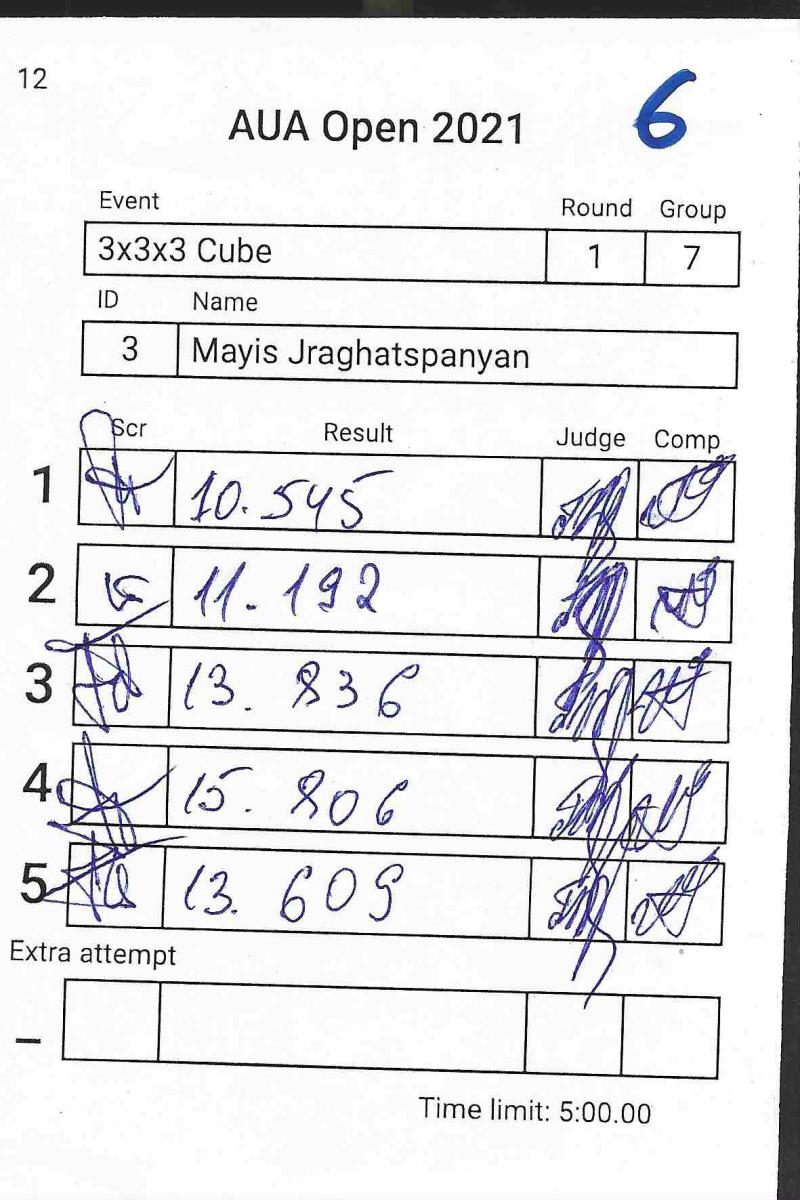 12
AUA Open 2021 6
Event Round Group
3x3x3 Cube 1 7
ID Name
3 Mayis Jraghatspanyan
Scr Result Judge Comp
1 10.545
2 11.192
3 13.836
4 15.806
5 13.609
Extra attempt
_
Time limit: 5:00.00